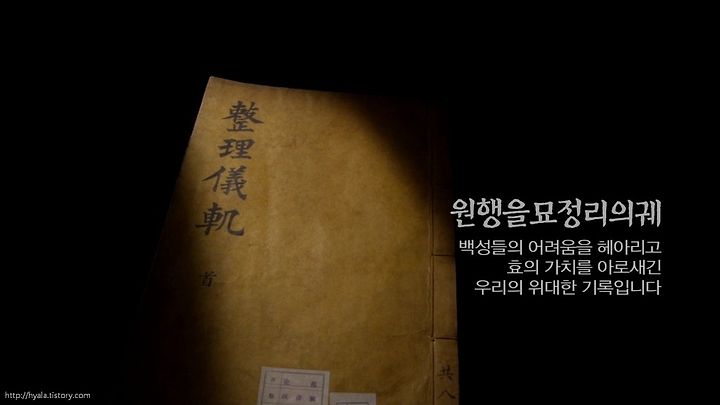 整理儀軌
首
원행을묘정리의궤
백성들의 어려움을 헤아리고
효의 가치를 아로새긴
우리의 위대한 기록입니다
共八
http://hyala.tistory.com